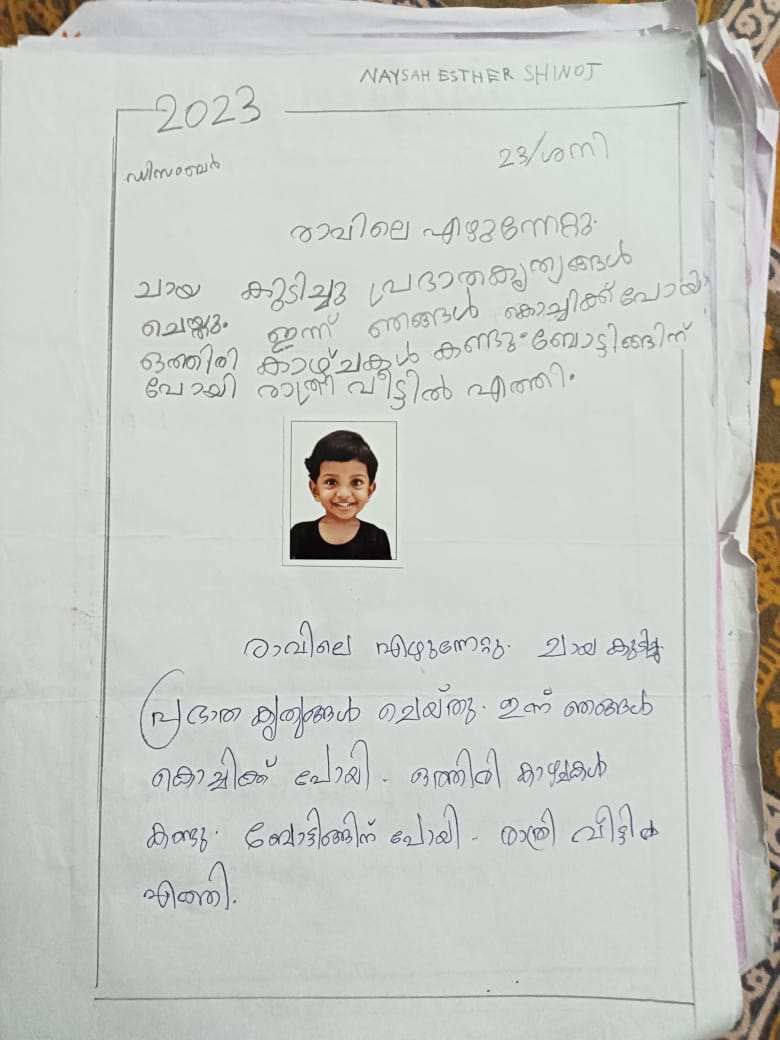 NAYSAH ESTHER SHINOJ
2023
ഡിസംബർ
23/ശനി
രാവിലെ എഴുന്നേറ്റു.
ചായ കുടിച്ചു പ്രഭാതകൃത്യങ്ങൾ
ചെയ്തു. ഇന്ന് ഞങ്ങൾ കൊച്ചിക്ക് പോയി
ഒത്തിരി കാഴ്ചകൾ കണ്ടു. ബോട്ടിങ്ങിന്
പോയി രാത്രി വീട്ടിൽ എത്തി.
രാവിലെ എഴുന്നേറ്റു. ചായ കുടിച്ചു
പ്രഭാത കൃത്യങ്ങൾ ചെയ്തു. ഇന്ന് ഞങ്ങൾ
കൊച്ചിക്ക് പോയി. ഒത്തിരി കാഴ്ചകൾ
കണ്ടു. ബോട്ടിങ്ങിന് പോയി. രാത്രി വീട്ടിൽ
എത്തി.